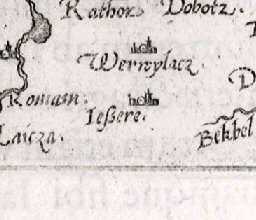 Rathoz Dobotz.
Werwylacz
D
Romam.
Ießere.
Laicza.
Bekbel